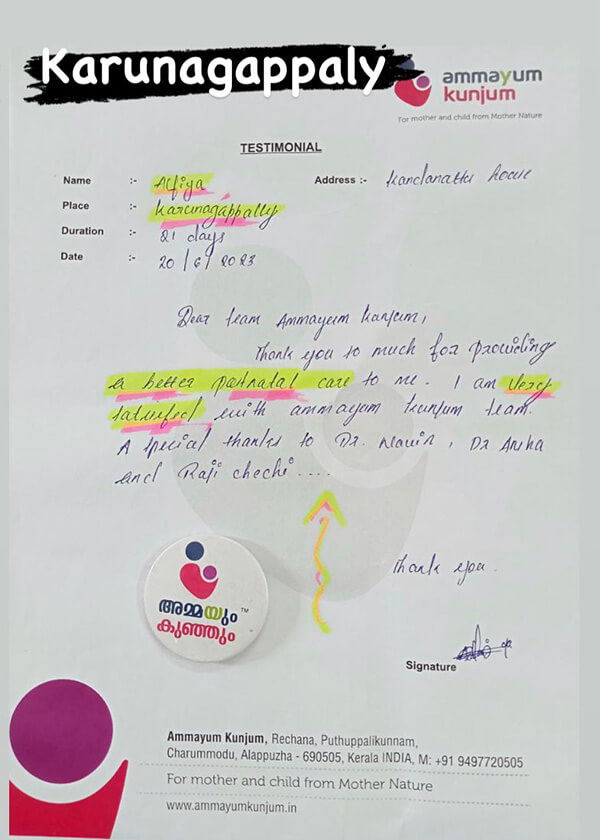 Karunagappaly
ammayum
kunjum
For mother and child from Mother Nature
TESTIMONIAL
Name :- Alfiya Address :- Kandanattu house
Place :- Karunagappally
Duration :- 21 days
Date :- 20/6/2023
Dear team Ammayum Kunjum,
Thank you to much for providing
a better postnatal care to me. I am very
satisfied with ammayum kunjum team.
A special thanks to Dr. Navin, Dr
and Raji chechi ....
Thank you.
അമ്മയും TM
കുഞ്ഞും
Signature
Ammayum Kunjum, Rechana, Puthuppalikunnam,
Charummodu, Alappuzha - 690505, Kerala INDIA, M: +91 9497720505
For mother and child from Mother Nature
www.ammayumkunjum.in